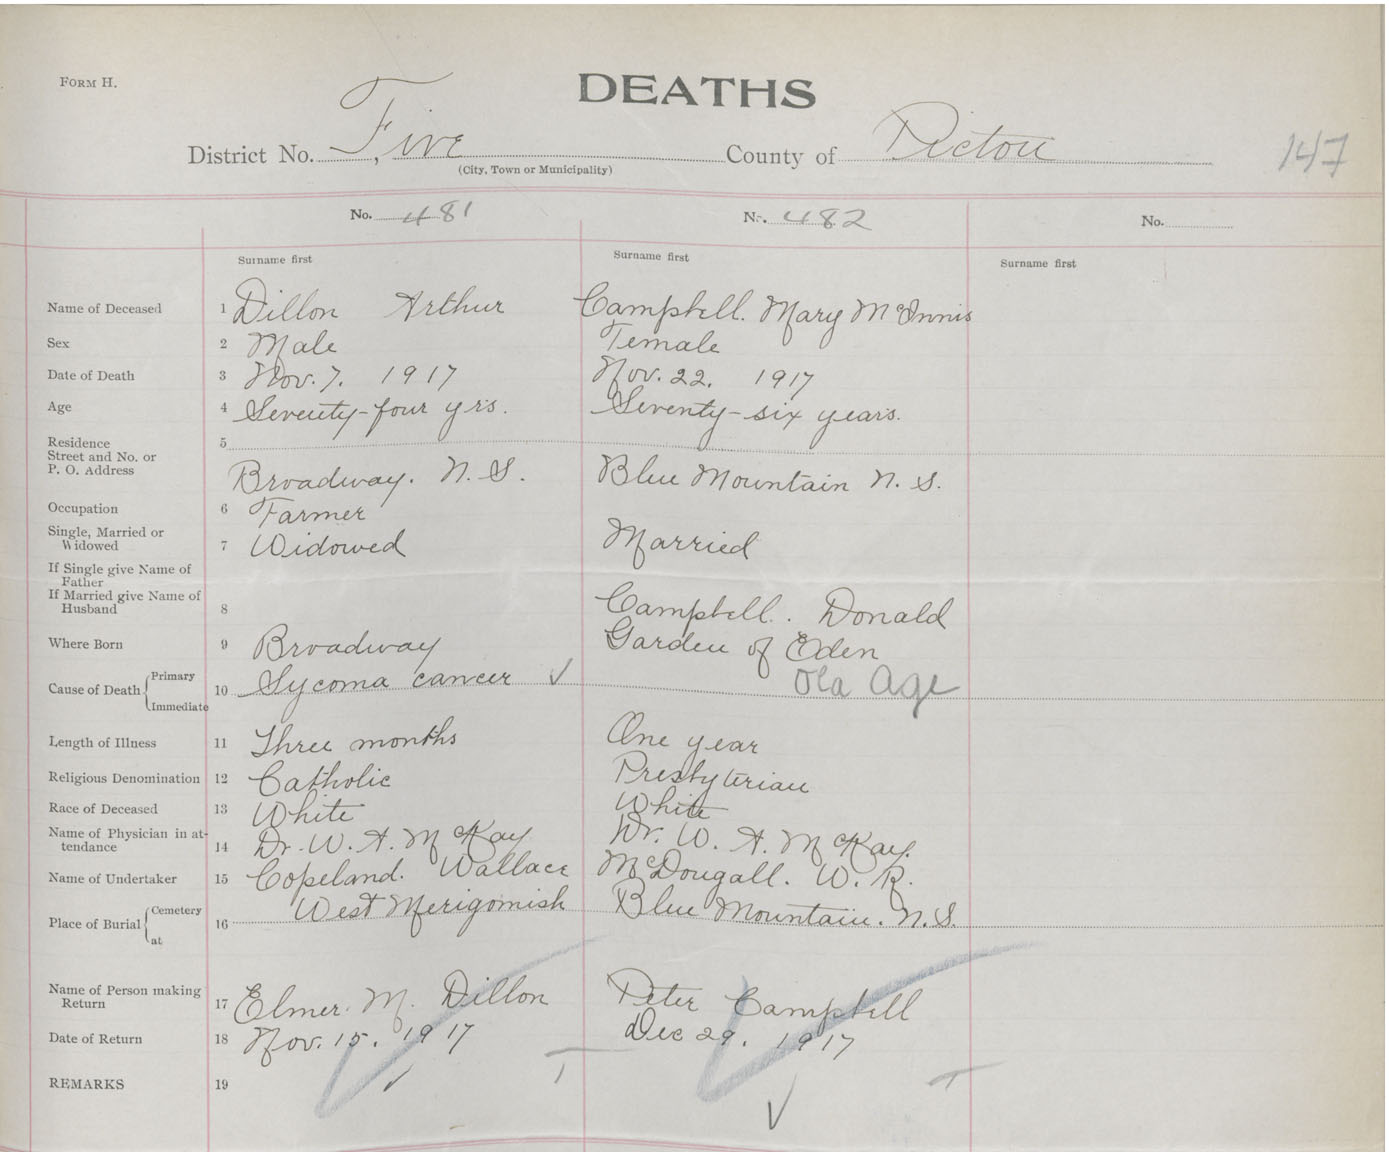 FORM H.
DEATHS
147
District No. Five County of Pictou
(City, Town or Municipality)
No. 481 No. 482 No.
Surname first Surname first Surname first
Name of Deceased 1 Dillon Arthur Campbell. Mary McInnis
Sex 2 Male Female
Date of Death 3 Nov. 7. 1917 Nov. 22. 1917
Age 4 Seventy-four yrs. Seventy-six years.
Residence 5
Street and No. or
P. O. Address Broadway. N. S. Blue Mountain N. S.
Occupation 6 Farmer
Single, Married or
Widowed 7 Widowed Married
If Single give Name of
Father
If Married give Name of
Husband 8 Campbell. Donald
Where Born 9 Broadway Garden of Eden
Cause of Death Primary
10 Sycoma cancer ✓ Old Age
Immediate
Length of Illness 11 Three months One year
Religious Denomination 12 Catholic Presbyterian
Race of Deceased 13 White White
Name of Physician in at-
tendance 14 Dr. W. A. McKay Dr. W. A. McKay.
Name of Undertaker 15 Copeland. Wallace McDougall. W. R.
Place of Burial Cemetery West Merigomish Blue Mountain. N. S.
16
at
Name of Person making
Return 17 Elmer. M. Dillon Peter Campbell
Date of Return 18 Nov. 15. 1917 Dec 29. 1917
REMARKS 19